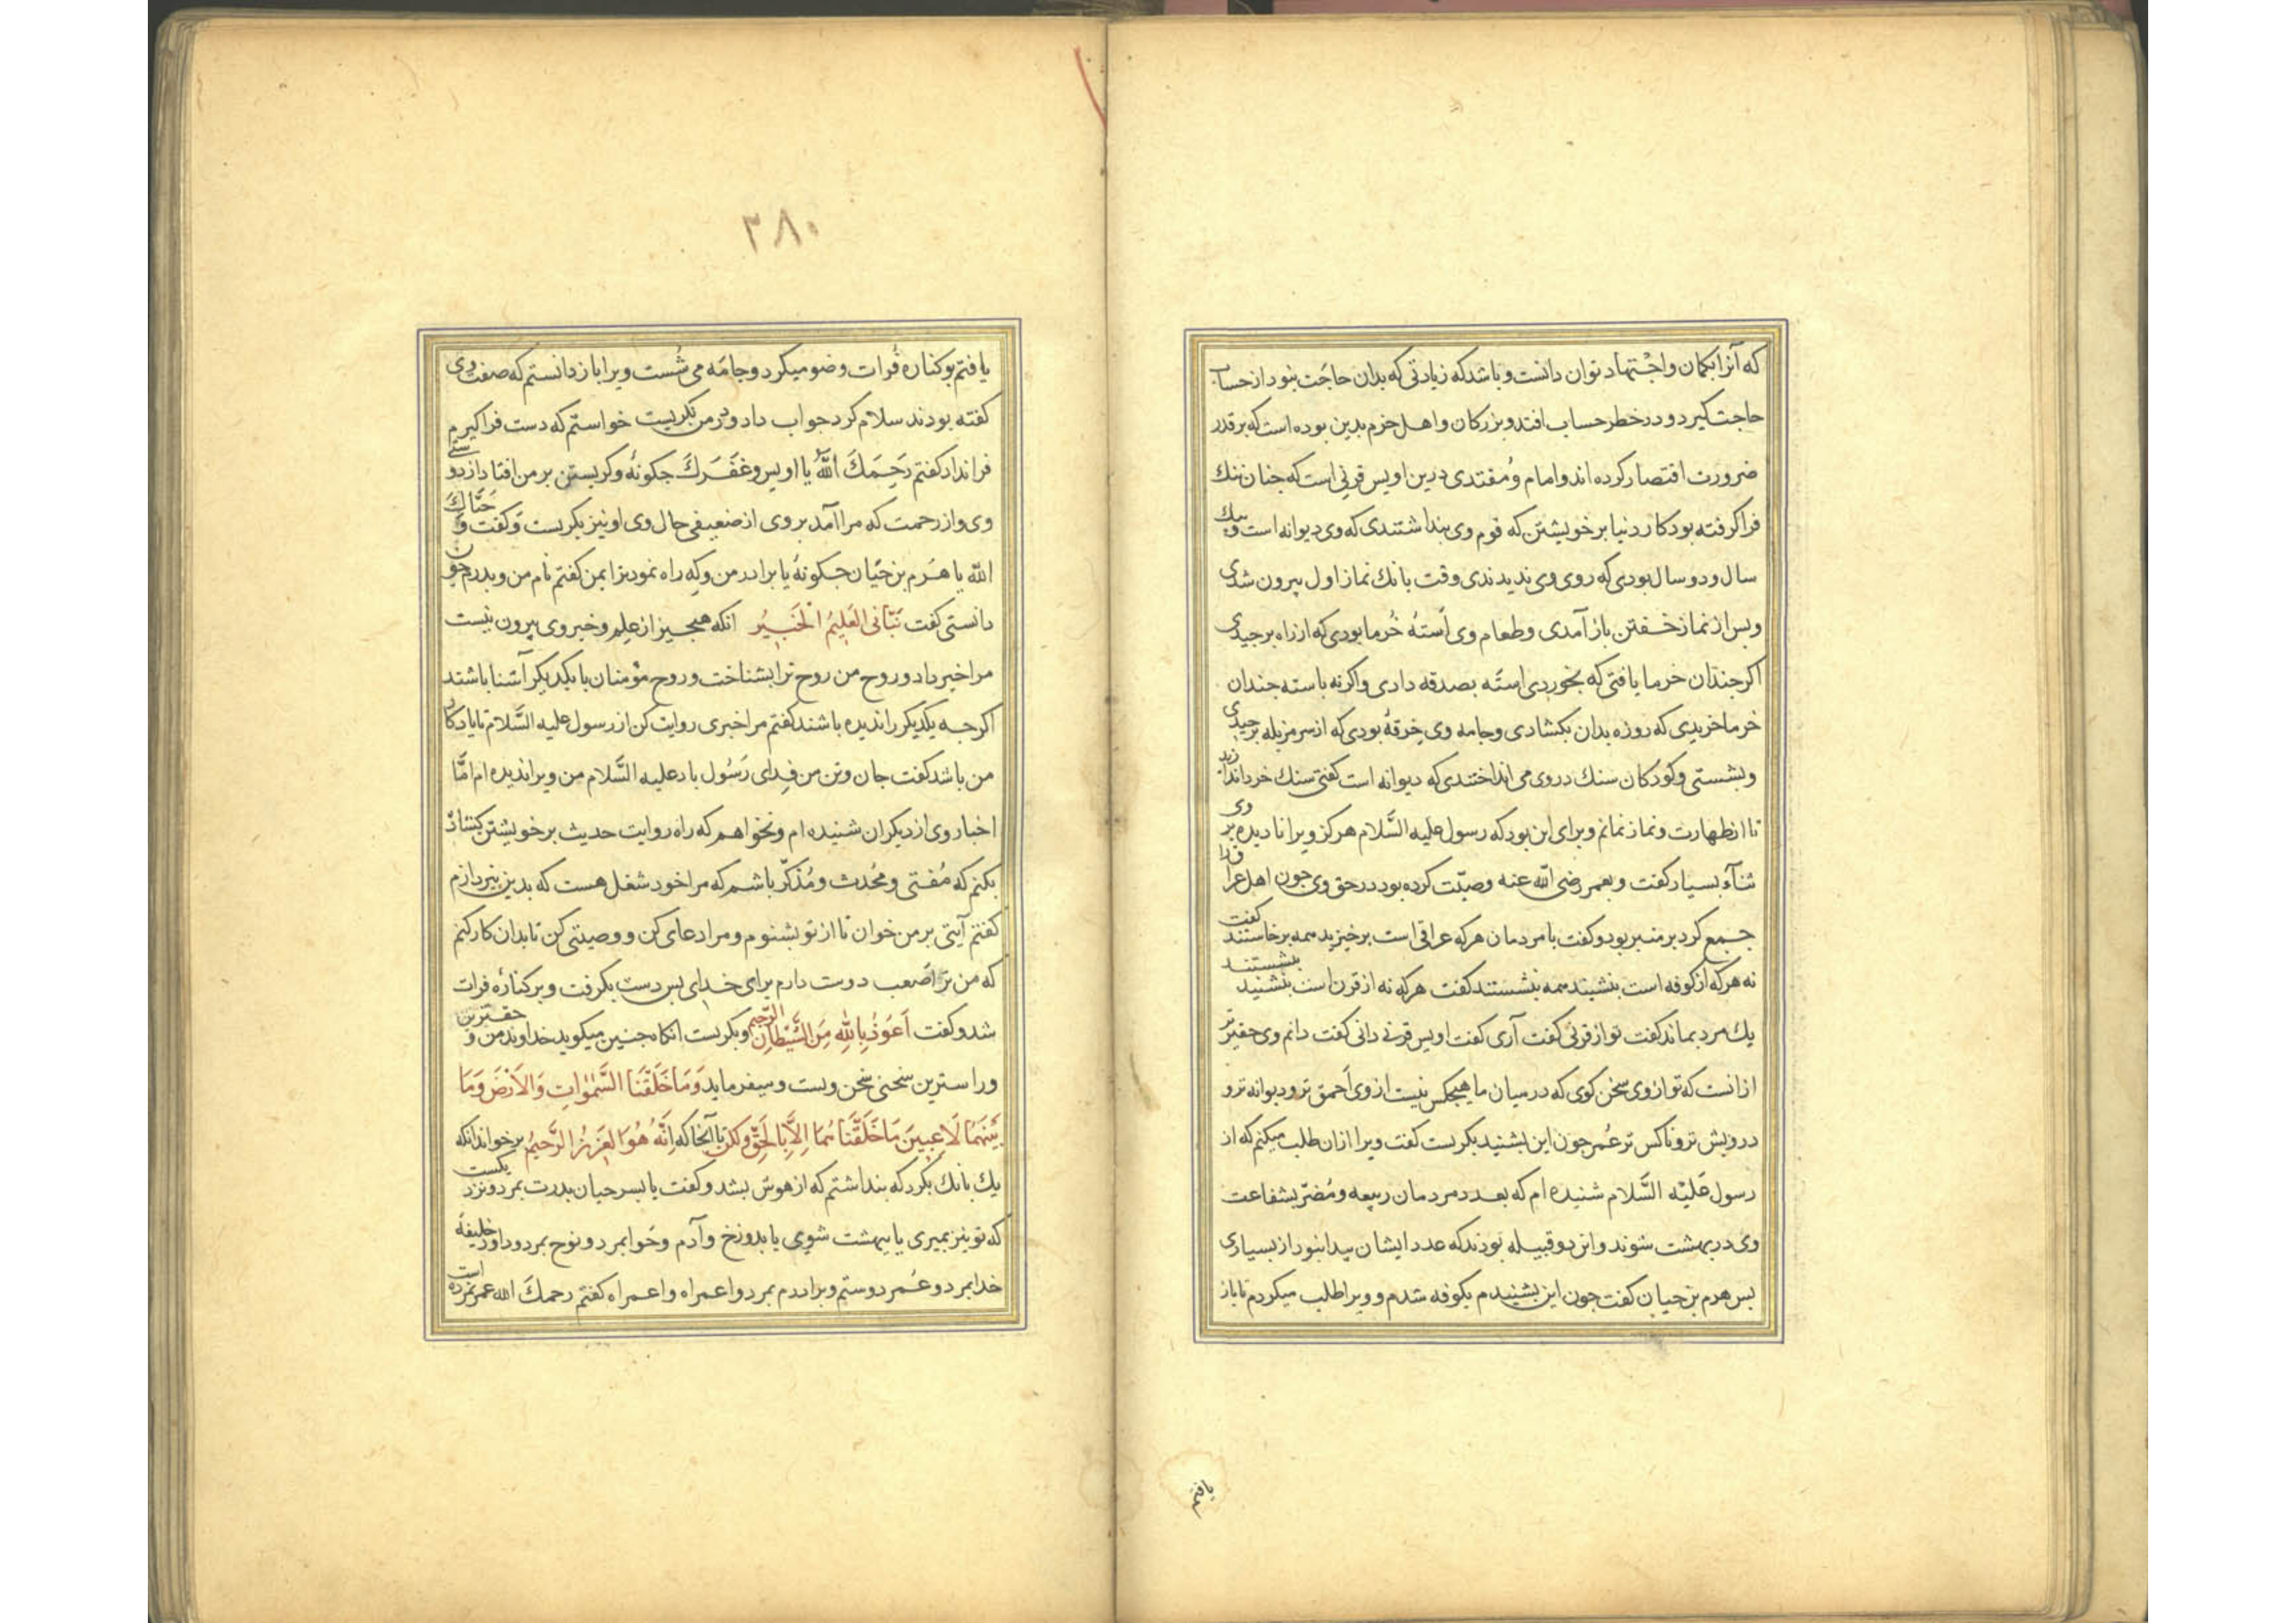 که آنرا بکمان واجتهاد توان دانست وباشد که زیادتی که بدان حاجت بنود از حساب
حاجت کیرد و در خطر حساب افتد و بزرکان واهل حزم بدین بوده است که بر قدر
ضرورت اقتصار کرده اند وامام ومقتدی درین اویس قرنی است که جنان تنك
فرا کرفته بود کار دنیا بر خویشتن که قوم وی بنداشتندی که وی دیوانه است و یك
سال و دو سال بودی که روی وی ندیدندی وقت بانك نماز اول بیرون شدی
وبس از نماز خفتن باز آمدی وطعام وی استهٔ خرما بودی که از راه برجیدی
اکر جندان خرما یافتی که بخوردی استه بصدقه دادی واکرنه باسته جندان
خرما خریدی که روزه بدان بکشادی وجامه وی خرقهٔ بودی که از سر مزبله برجیدی
وبشستی وکودکان سنك در وی می انداختندی که دیوانه است کفتی سنك خرد اندازید
تا از طهارت ونماز نمانم وبرای این بود که رسول علیه السَّلام هرکز ویرا نادیده بر وی
ثنآء بسیار کفت و بعمر رضی الله عنه وصیّت کرده بود در حق وی جون اهل عراق را
جمع کرد بر منبر بود وکفت یا مردمان هرکه عراقی است برخیزید همه برخاستند کفت
نه هرکه از کوفه است بنشیند همه بنشستند کفت هرکه نه از قرن است بنشیند بنشستند
یك مرد بماند کفت تو از قرنی کفت آری کفت اویس قرنی دانی کفت دانم وی حقیر تر
از انست که تو از وی سخن کوی که در میان ما هیجکس نیست از وی احمق تر ودیوانه تر و
درویش تر وناکس تر عُمر جون این بشنید بکریست کفت ویرا ازان طلب میکنم که از
رسول عَلیْه السَّلام شنیده ام که بعدد مردمان ربیعه ومُضر بشفاعت
وی در بهشت شوند واین دو قبیله بوذند که عدد ایشان بیدا نبود از بسیاری
بس هرم بن حیان کفت جون این بشنیدم بکوفه شدم و ویرا طلب میکردم تا باز
یافتم
٣٨٠
یافتم بر کناره فُرات وضو میکرد وجامَه می شُست ویرا باز دانستم که صفت وی
کفته بودند سلام کرد جواب داد و در من نکریست خواستم که دست فرا کیرم
فرا نداد کفتم رَحِمَكَ اللهُ یا اویس وغَفَرَلَكَ جکونهٔ وکریستن بر من افتاد از دوستی
وی واز رحمت که مرا آمد بر وی از ضعیفی حال وی او نیز بکریست و کفت و حَیَّاكَ
اللّه یا هَرَم بن حَیّان جکونهٔ یا برادر من وکه راه نمود ترا بمن کفتم نام من وبدرم جون
دانستی کفت نَبَّانی العَلیمُ الْخَبیرُ انکه هیجیز از علم وخبر وی بیرون نیست
مرا خبر داد وروح من روح ترا بشناخت وروح مؤمنان با یکدیکر آشنا باشند
اکرجه یکدیکر را ندیده باشند کفتم مرا خبری روایت کن از رسول علیه السَّلام تا یادکار
من باشد کفت جان وتن من فِدای رَسُول باد علیه السَّلام من ویرا ندیده ام امَّا
اخبار وی از دیکران شنیده ام ونخواهم که راه روایت حدیث بر خویشتن کشاذ
بکنم که مُفتی ومُحدث ومُذکّر باشم که مرا خود شغل هست که بدین نبردازم
کفتم آیتی بر من خوان تا از تو بشنوم ومرا دعای کن و وصیتی کن تا بدان کار کنم
که من ترا صعب دوست دارم برای خدای بس دست بکرفت وبر کنارهٔ فرات
شد وکفت اَعوُذُ بِاللهِ مِنَ الشَّیْطانِ الرَّجیم وبکریست انکاه جنین میکوید خداوند من و حقترین
وراسترین سخنی سخن ویست ومیفرماید وَمَا خَلَقْنَا السَّمٰوٰاتِ وَالاَرْضَ وَمَا
بَیْنَهُمَا لاَعِبینَ مَا خَلَقْنَاهُمَا اِلاَّ بِالْحَقِّ ولکن تا آنجا که اِنَّهُ هُوَ العَزیزُ الرَّحیمُ برخواند انکه
یك بانك بکرد که بنداشتم که از هوش بشد وکفت یا بسر حیان بدرت بمرد ونزدیکست
که تو نیز بمیری یا ببهشت شوی یا بدوزخ وآدم وحَوا بمرد ونوح بمرد وداود خلیفه
خدا بمرد وعُمر دوستم وبرادرم بمرد واعمراه واعمراه کفتم رحمكَ الله عمر نمرده است